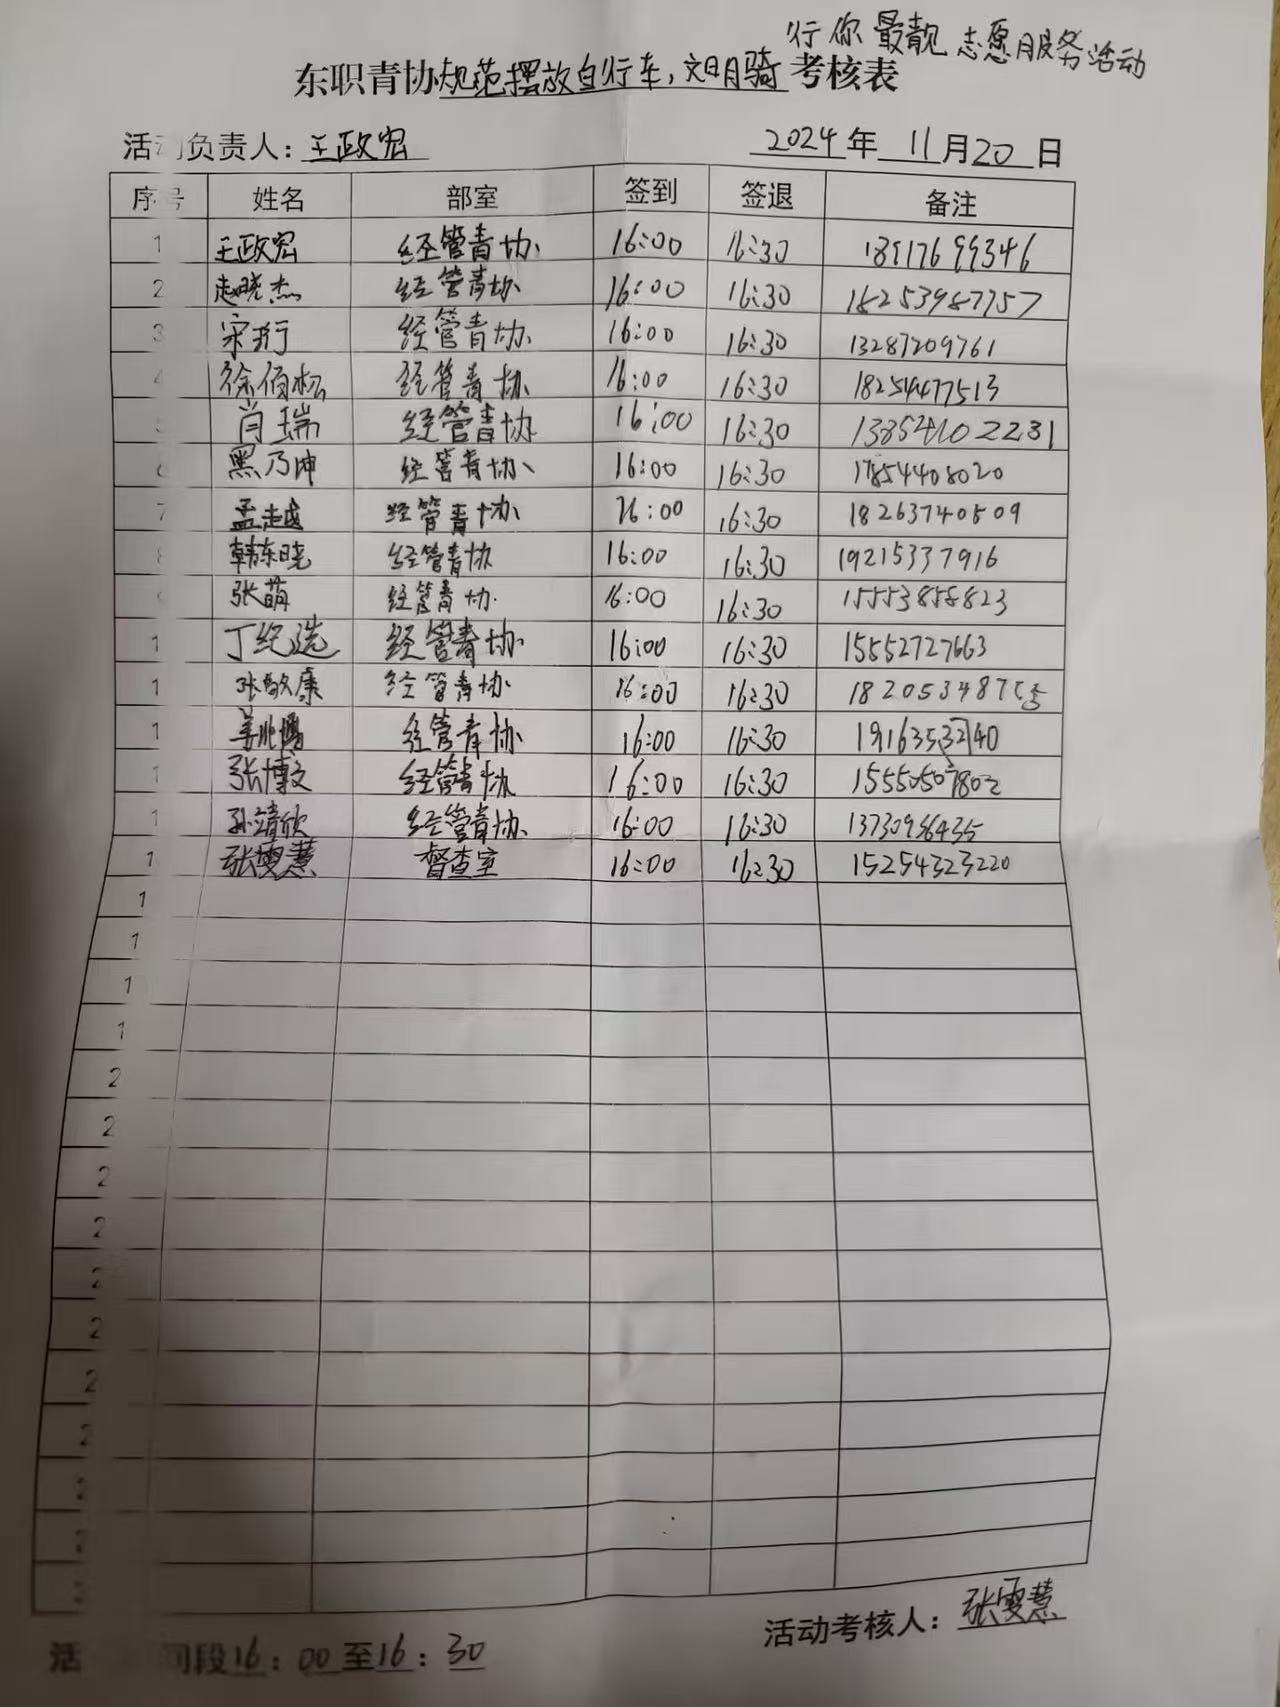 行你最靓志愿服务活动
东职青协规范摆放自行车,文明骑考核表
活动负责人:王政宏 2024年11月20日
序号 姓名 部室 签到 签退 备注
1 王政宏 经管青协 16:00 16:30 18917699346
2 赵晓杰 经管青协 16:00 16:30 18253987757
3 宋珩 经管青协 16:00 16:30 13287209761
4 徐佰松 经管青协 16:00 16:30 18254477513
5 肖瑞 经管青协 16:00 16:30 13854102231
6 黑乃坤 经管青协 16:00 16:30 17854408020
7 孟越 经管青协 16:00 16:30 18263740509
8 韩东晓 经管青协 16:00 16:30 19215337916
9 张萌 经管青协 16:00 16:30 15553858823
1 丁纪选 经管青协 16:00 16:30 15552727663
1 张敬康 经管青协 16:00 16:30
1 姜兆鹏 经管青协 16:00 16:30
1 张博文 经管青协 16:00 16:30
1 孙靖欣 经管青协 16:00 16:30 13730956435
1 张雯慧 督查室 16:00 16:30 15254323220
1
1
1
1
2
2
2
2
2
2
2
2
2
2
活动考核人:张雯慧
活 间段16:00至16:30